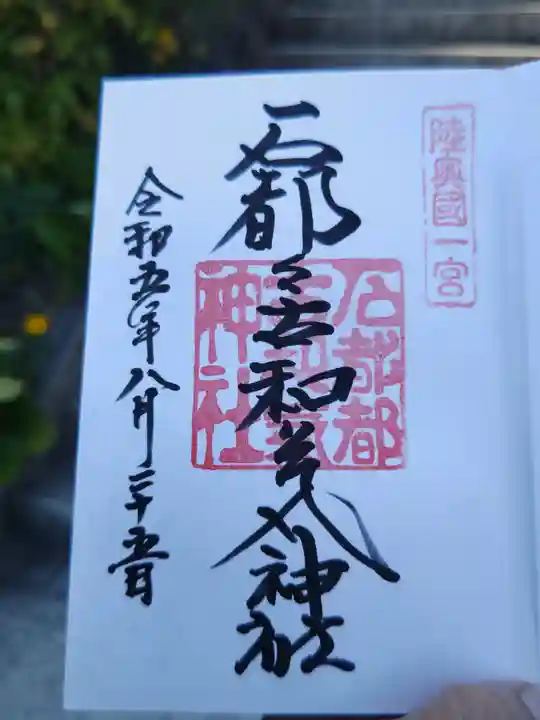 陸奥國一宮
石都々古和氣神社
石都都古和氣神社
令和五年八月二十五日